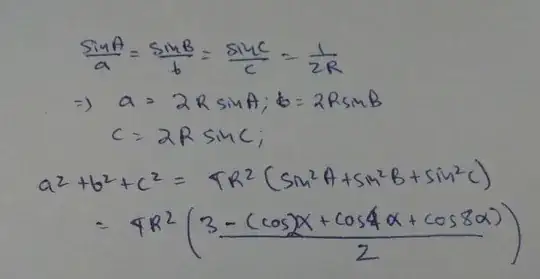 sinA/a = sinB/b = sinC/c = 1/2R
=) a = 2R sinA; b = 2RsinB
c = 2R sinC;
a² + b² + c² = 4R² (sin²A + sin²B + sin²C)
= 4R² (3 - (cos2α + cos4α + cos8α)/2)